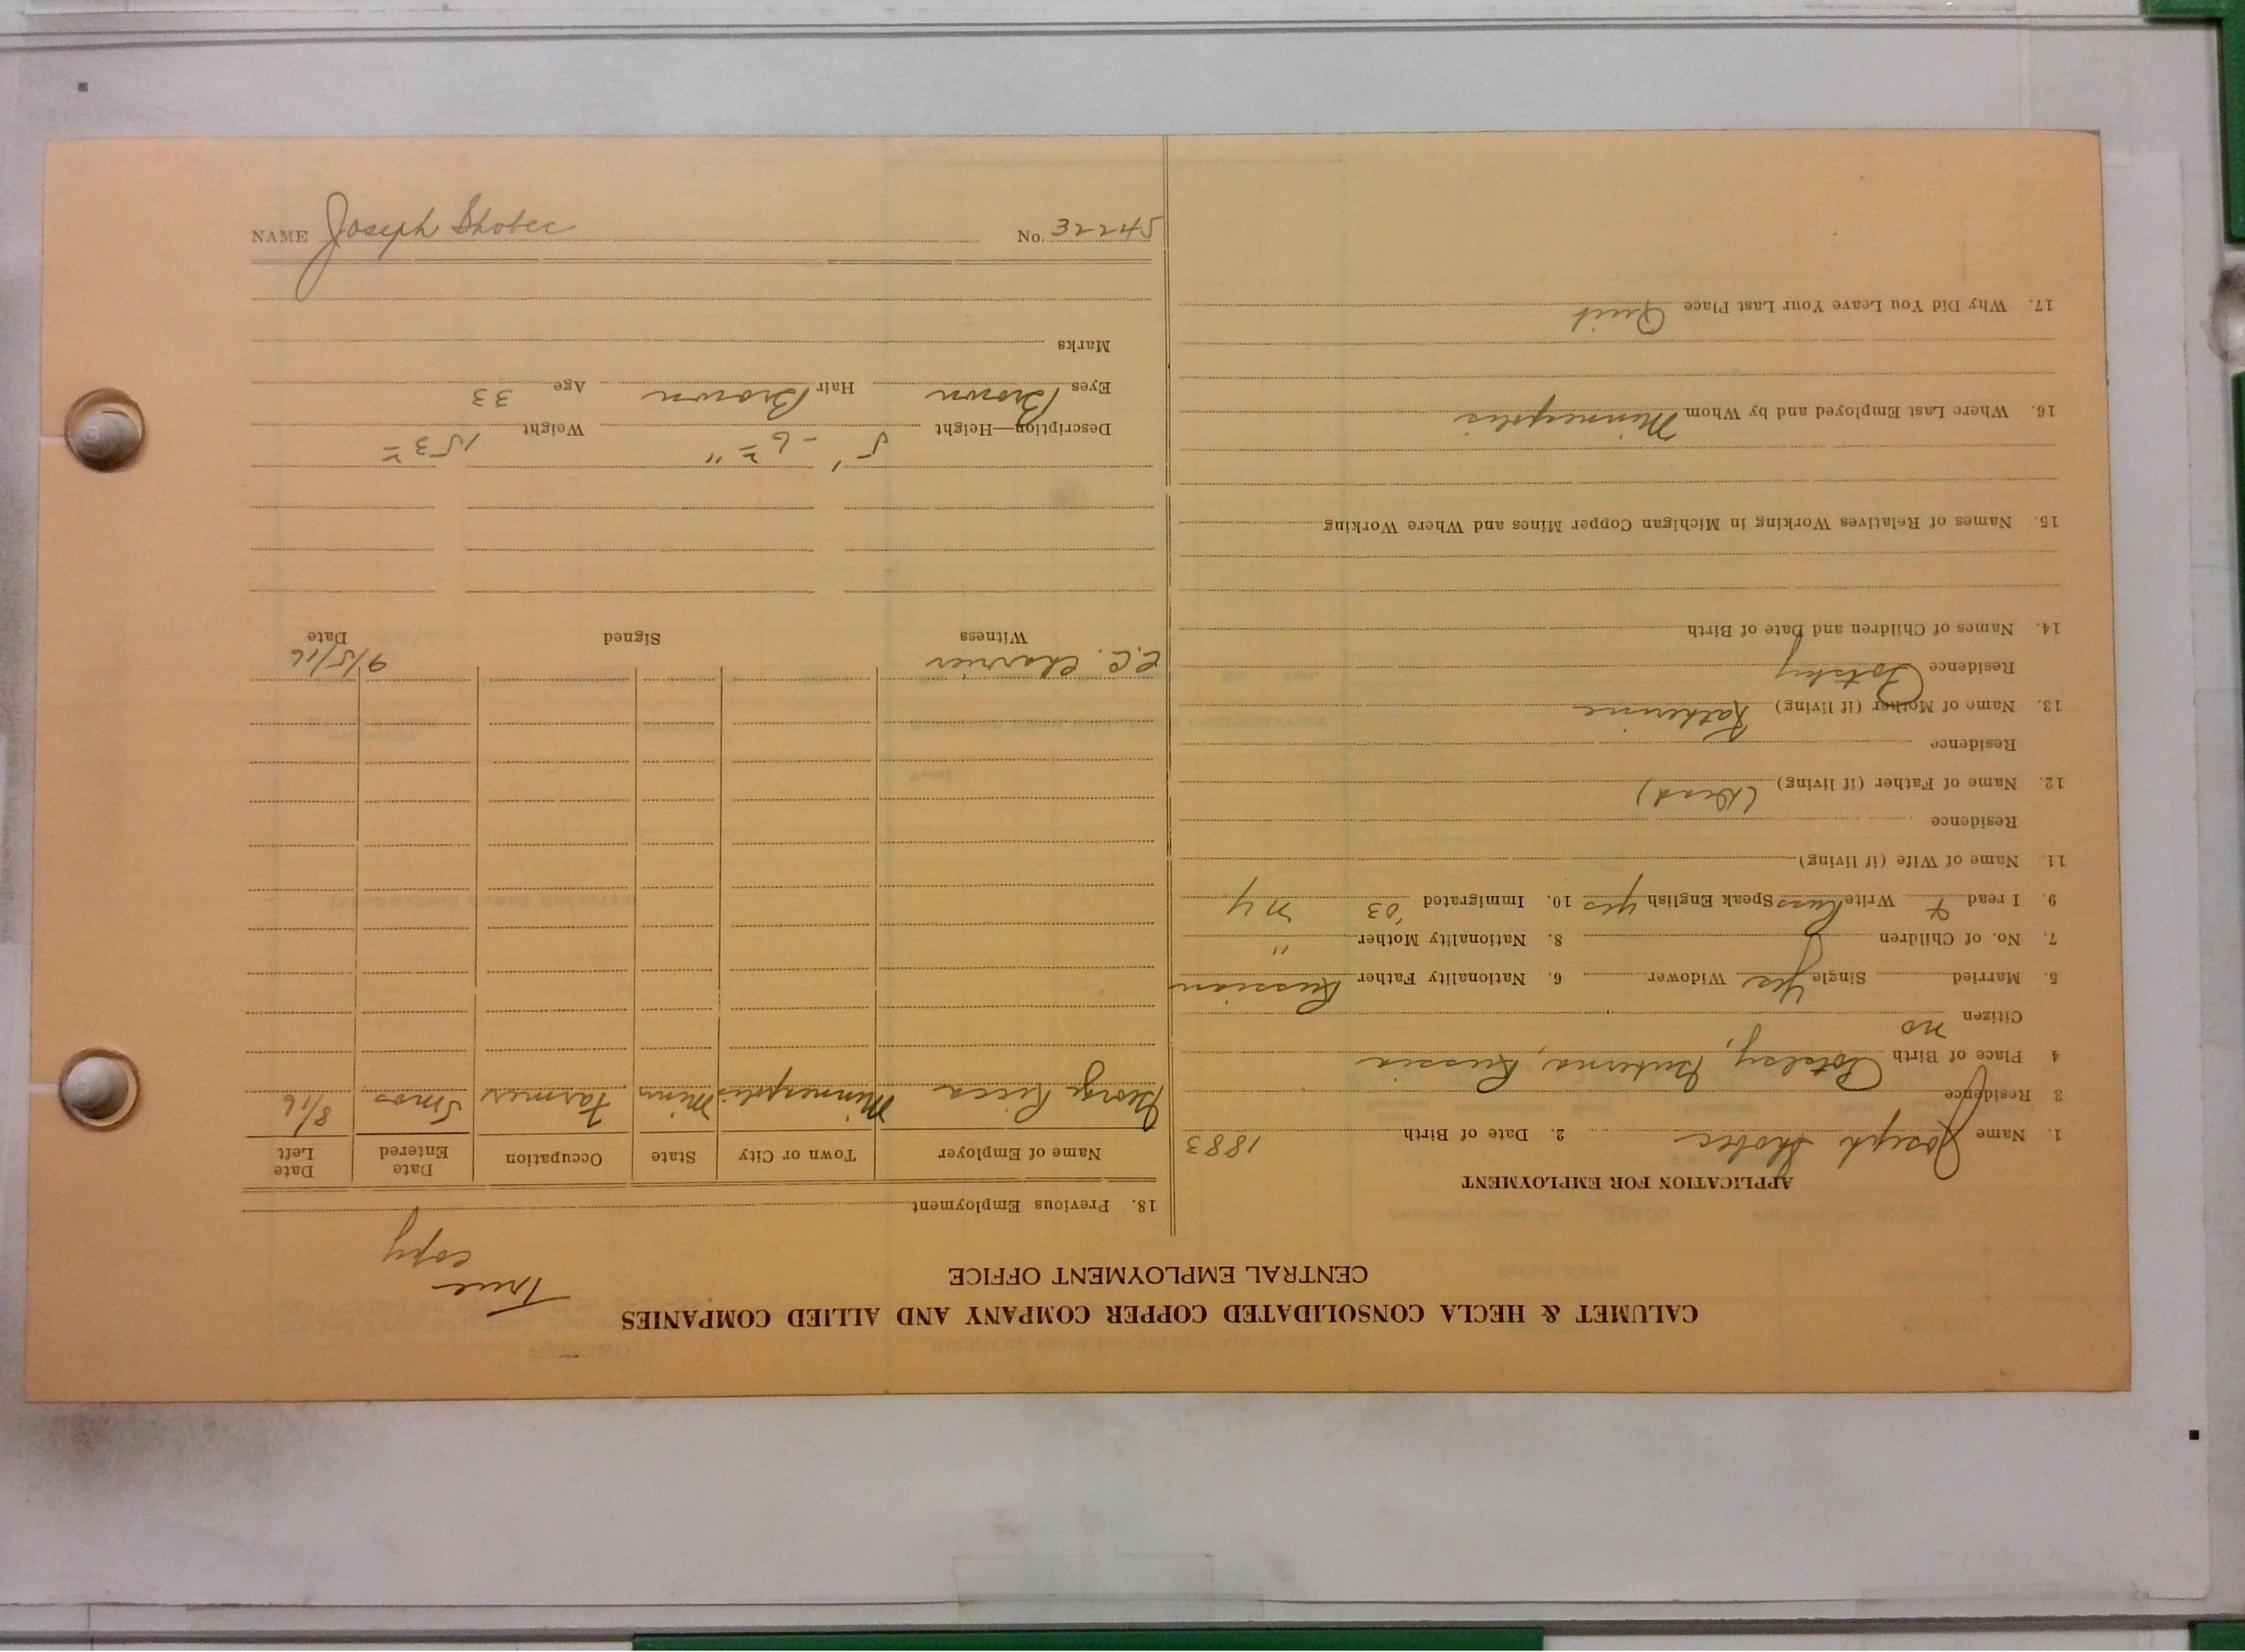 CALUMET & HECLA CONSOLIDATED COPPER COMPANY AND ALLIED COMPANIES
CENTRAL EMPLOYMENT OFFICE
True
copy
APPLICATION FOR EMPLOYMENT
1. Name Joseph Skobec 2. Date of Birth 1883
3 Residence
4 Place of Birth Russia
Citizen no
5. Married Single Yes Widower 6. Nationality Father Russian
7. No. of Children 8. Nationality Mother "
9. I read & Write Russ Speak English yes 10. Immigrated '03 N Y
11. Name of Wife (if living)
Residence
12. Name of Father (if living) (Dead)
Residence
13. Name of Mother (if living) Katherine
Residence
14. Names of Children and Date of Birth
15. Names of Relatives Working in Michigan Copper Mines and Where Working
16. Where Last Employed and by Whom Minneapolis
17. Why Did You Leave Your Last Place Quit
18. Previous Employment
Name of Employer Town or City State Occupation Date Entered Date Left
George Ricca Minneapolis Minn Farmer 5 mos 8/16
C.C. Charrier 9/5/16
Witness Signed Date
5' - 6 = " 153 =
Description—Height Weight
Eyes Brown Hair Brown Age 33
Marks
NAME Joseph Skobec No. 32245